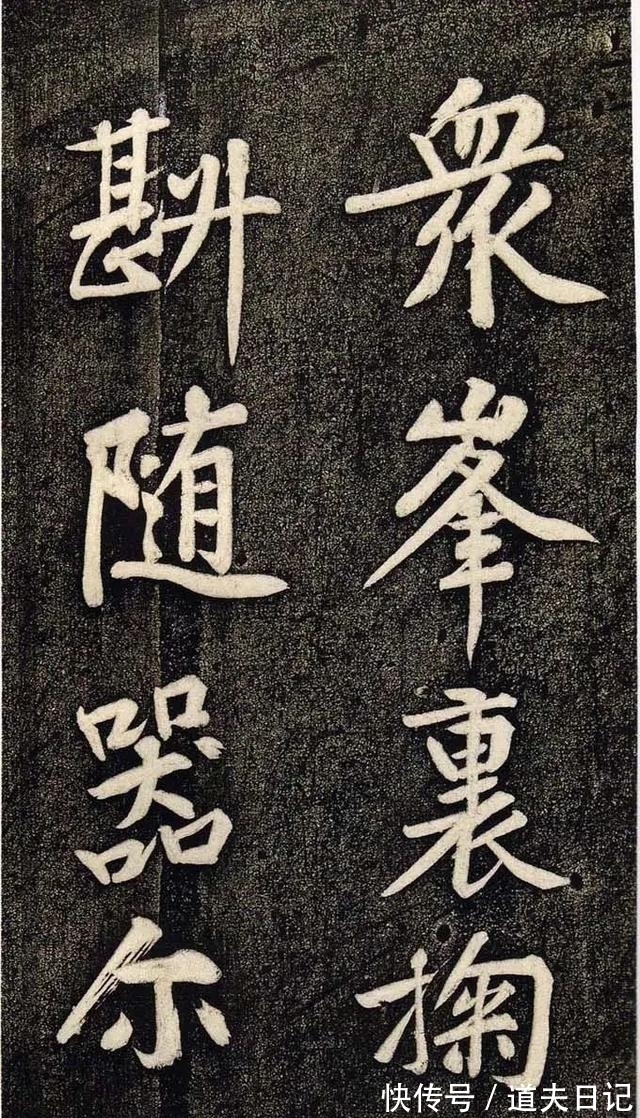 衆峯裏掬
斟随器尔
快传号 / 道夫日记